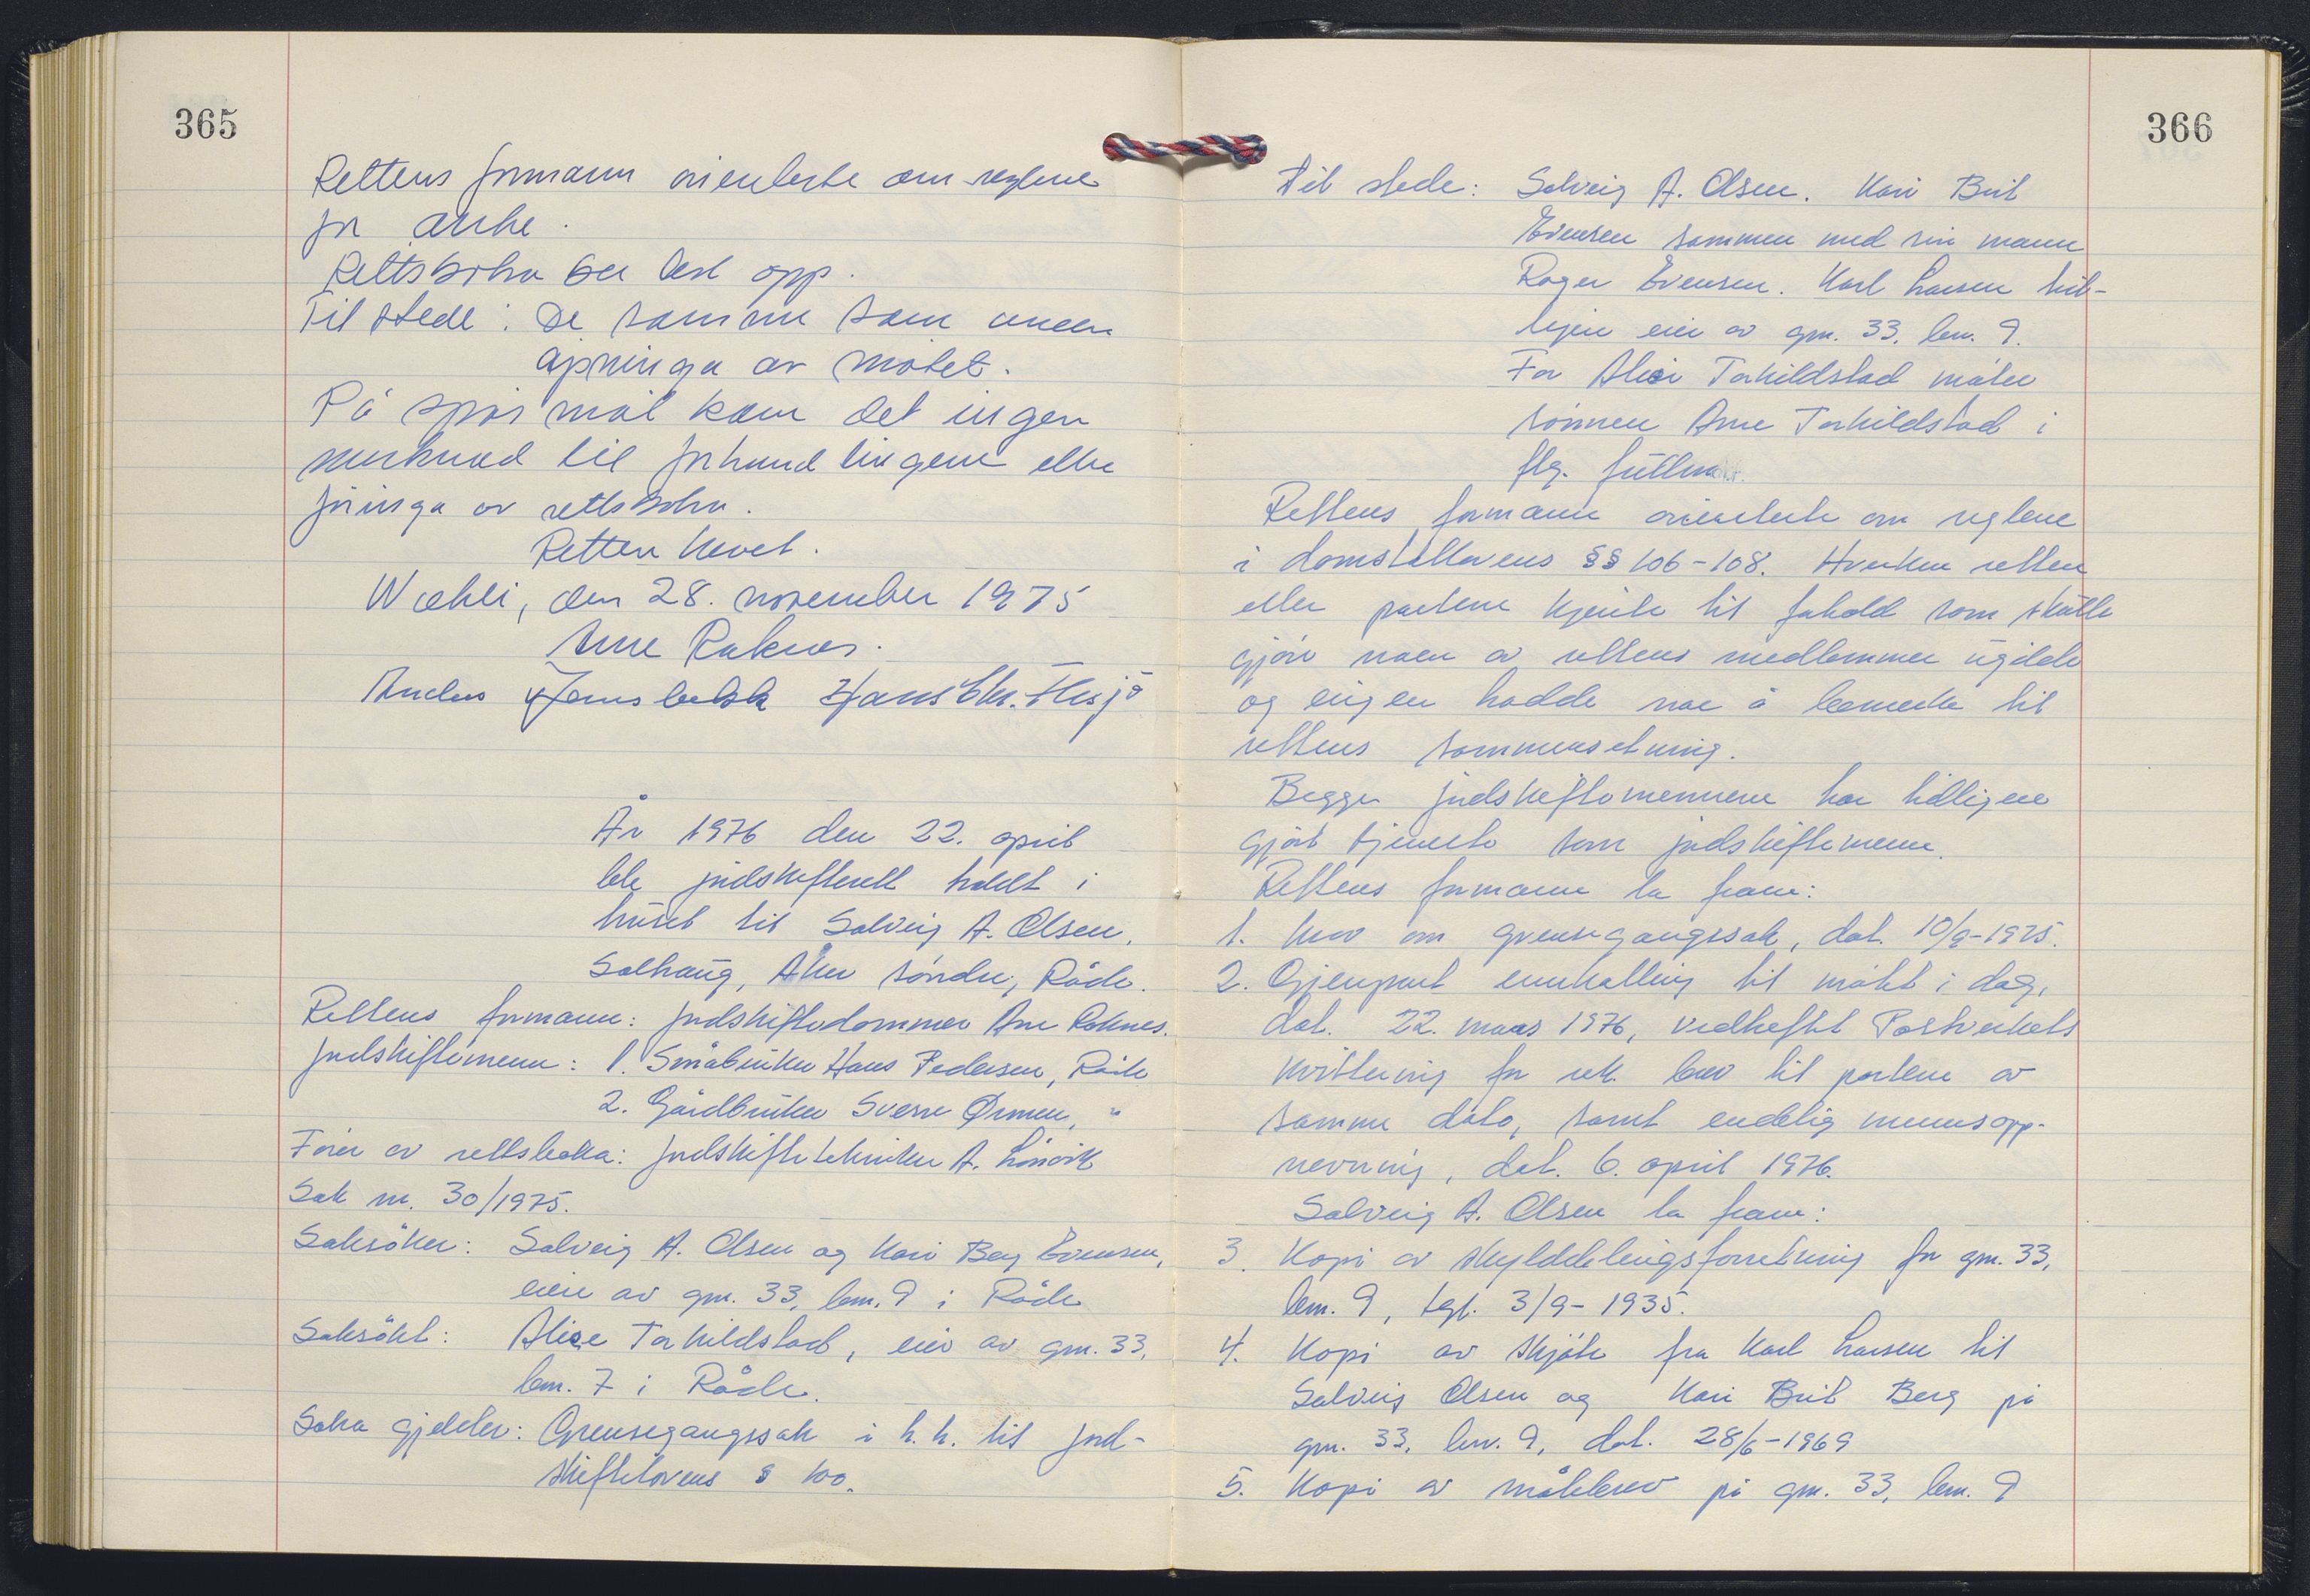 365
Rettens formann orienterte om reglene
for anke.
Rettsboka ble lest opp.
Til stede: De samme som under
åpninga av møtet.
På spørsmål kom det ingen
merknad til forhandlingene eller
føringa av rettsboka.
Retten hevet.
den 28. november 1975
Arne Raknes.
Anders Hans Chr.
År 1976 den 22. april
ble jordskifterett holdt i
huset til Solveig A. Olsen,
Solhaug, Åker søndre, Råde.
Rettens formann: Jordskiftedommer Arne Raknes.
Jordskiftemenn: 1. Småbruker Hans Pedersen, Råde
2. Gårdbruker Sverre Ørmen, "
Fører av rettsboka: Jordskiftetekniker A. Lörvik
Sak nr. 30/1975.
Saksöker: Solveig A. Olsen og Kari Berg Evensen,
eiere av gnr. 33, bnr. 9 i Råde
Saksökt: Alice Torkildstad, eier av gnr. 33,
bnr. 7 i Råde.
Saka gjelder: Grensegangssak i h.h. til jord-
skiftelovens § 100.
366
Til stede: Solveig A. Olsen. Kari Brit
Evensen sammen med sin mann
Roger Evensen. Karl Larsen tid-
ligere eier av gnr. 33, bnr. 9.
For Alice Torkildstad møter
sønnen Arne Torkildstad i
flg. fullmakt.
Rettens formann orienterte om reglene
i domstollovens §§ 106-108. Hverken retten
eller partene kjente til forhold som skulle
gjøre noen av rettens medlemmer ugilde
og ingen hadde noe å bemerke til
rettens sammensetning.
Begge jordskiftemennene har tidligere
gjort tjeneste som jordskiftemenn.
Rettens formann la fram:
1. Krav om grensegangssak, dat. 10/9-1975.
2. Gjenpart innkalling til møtet i dag,
dat. 22. mars 1976, vedheftet Postverkets
kvittering for rek. brev til partene av
samme dato, samt endelig mennsopp-
nevning, dat. 6. april 1976.
Solveig A. Olsen la fram:
3. Kopi av skylddelingsforretning for gnr. 33,
bnr. 9, tgl. 3/9-1935.
4. Kopi av skjøte fra Karl Larsen til
Solveig Olsen og Kari Brit Berg på
gnr. 33, bnr. 9, dat. 28/6-1969
5. Kopi av målebrev på gnr. 33, bnr. 9